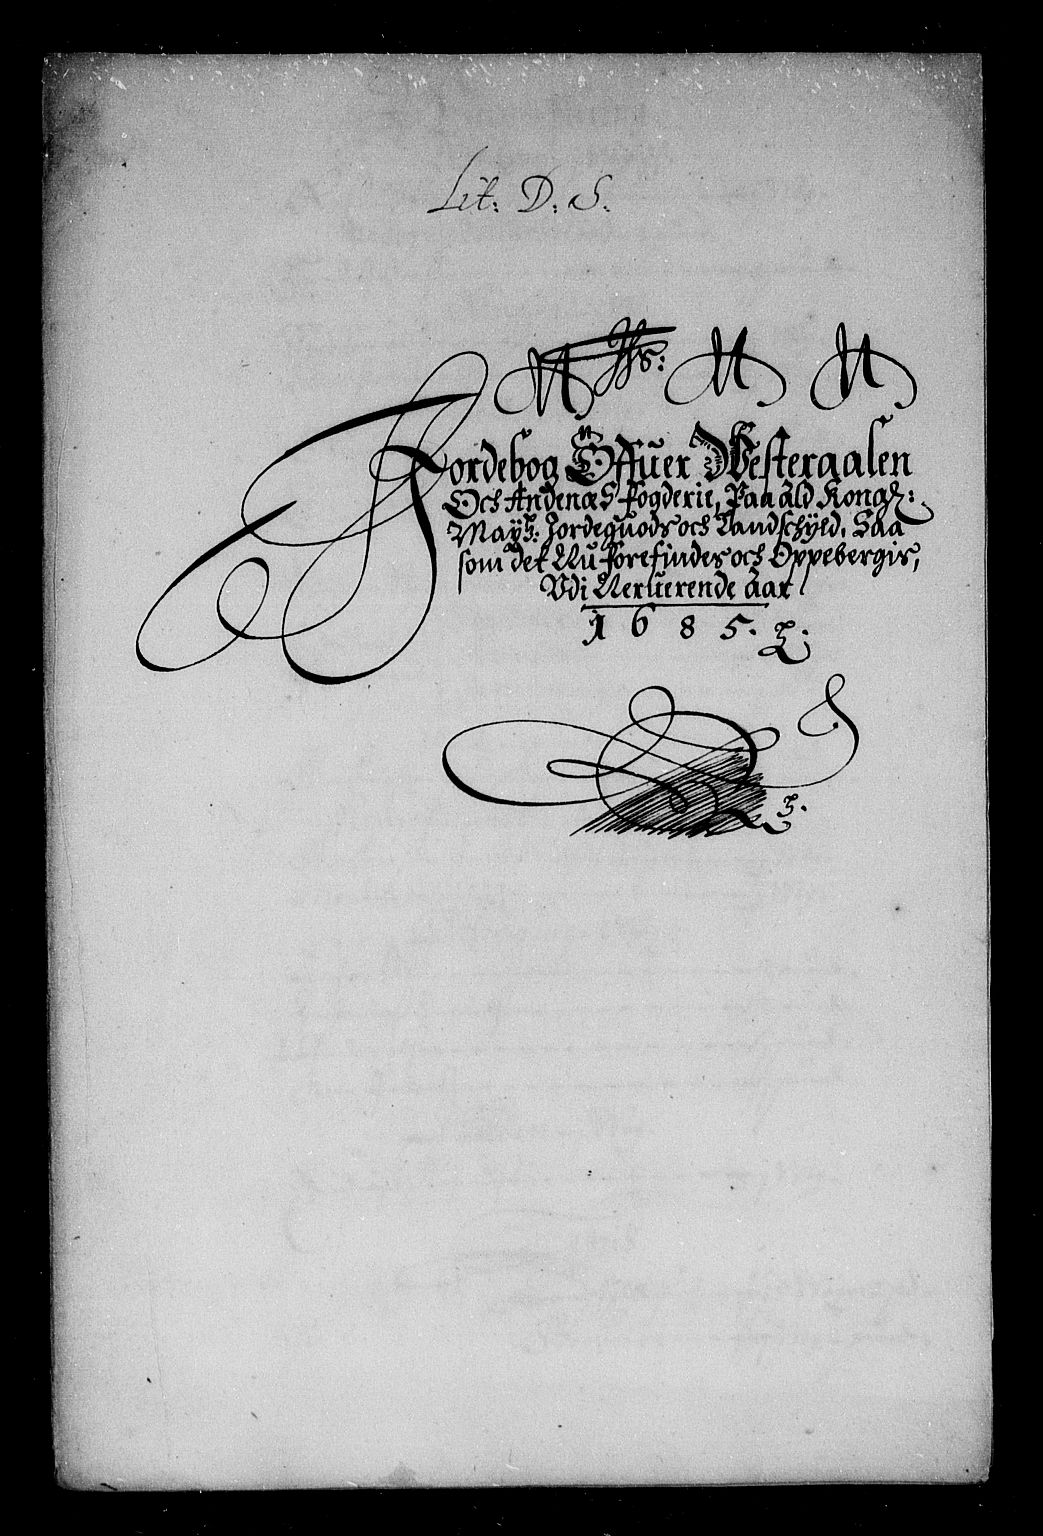 Lit: D: S:
Jordebog Offuer Westeraalen
Och AndenæS Fogderie, Paa ald Kongl:
Mayᵗˢ: Jordeguods och Landschyld. Saa
som det Nu Forefindes och Oppebergis,
Udi Neruerende Aar
1685.